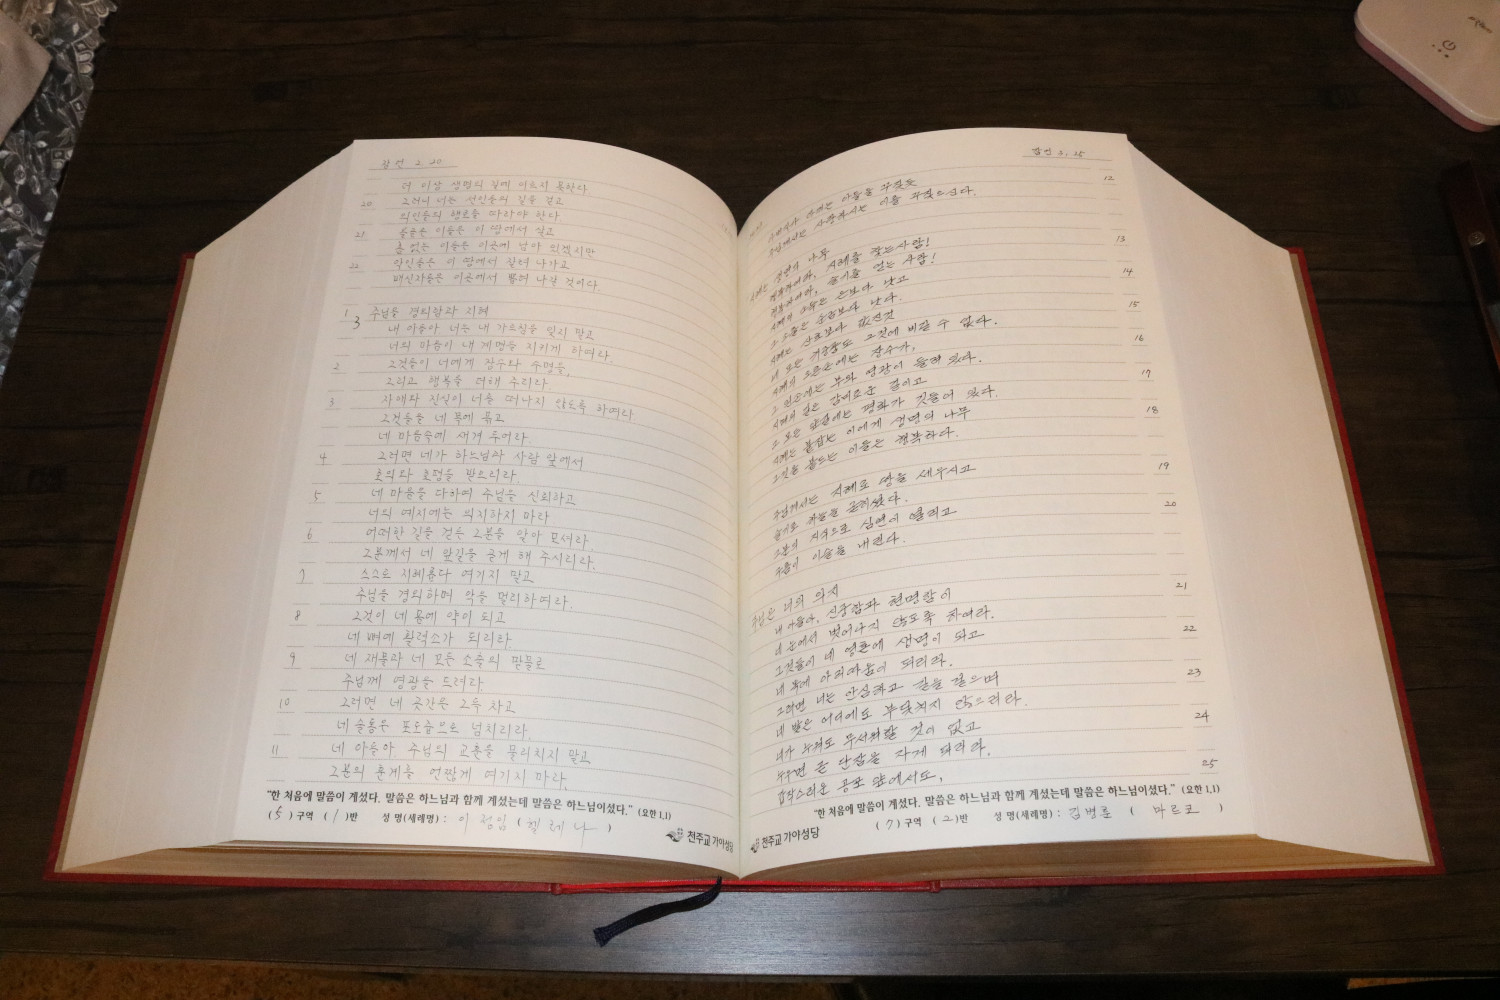 잠언 2, 20
더 이상 생명의 길에 이르지 못한다.
20 그러니 너는 선인들의 길을 걷고
의인들의 행로를 따라야 한다.
21 올곧은 이들은 이 땅에서 살고
흠 없는 이들은 이곳에 남아 있겠지만
22 악인들은 이 땅에서 잘려 나가고
배신자들은 이곳에서 뽑혀 나갈 것이다.
1 3 주님을 경외함과 지혜
내 아들아 너는 내 가르침을 잊지 말고
너의 마음이 내 계명을 지키게 하여라.
2 그것들이 너에게 장수와 수명을,
그리고 행복을 더해 주리라
3 자애와 진실이 너를 떠나지 않도록 하여라
그것들을 네 목에 묶고
네 마음속에 새겨 두어라
4 그러면 네가 하느님과 사람 앞에서
호의와 호평을 받으리라.
5 네 마음을 다하여 주님을 신뢰하고
너의 예지에는 의지하지 마라
6 어떠한 길을 걷든 그분을 알아 모셔라.
그분께서 네 앞길을 곧게 해 주시리라.
7 스스로 지혜롭다 여기지 말고
주님을 경외하며 악을 멀리하여라.
8 그것이 네 몸에 약이 되고
네 뼈에 활력소가 되리라.
9 네 재물과 네 모든 소출의 맏물로
주님께 영광을 드려라.
10 그러면 네 곳간은 그득 차고
네 술통은 포도즙으로 넘치리라.
11 네 아들아, 주님의 교훈을 물리치지 말고
그분의 훈계를 언짢게 여기지 마라.
"한 처음에 말씀이 계셨다. 말씀은 하느님과 함께 계셨는데 말씀은 하느님이셨다." (요한 1,1)
( 5 ) 구역 ( 1 )반 성 명(세례명) : 이 정임 ( 헬레나 )
천주교 가야성당
잠언 3, 25
아버지가 아끼는 아들을 꾸짖듯 12
주님께서는 사랑하시는 이를 꾸짖으신다.
지혜는 생명의 나무
행복하여라, 지혜를 찾는 사람! 13
행복하여라, 슬기를 얻는 사람!
지혜의 소득은 은보다 낫고 14
그 소출은 순금보다 낫다.
지혜는 산호보다 값진것 15
네 모든 귀중품도 그것에 비길 수 없다.
지혜의 오른손에는 장수가, 16
그 왼손에는 부와 영광이 들려 있다.
지혜의 길은 감미로운 길이고 17
그 모든 앞길에는 평화가 깃들어 있다.
지혜는 붙잡는 이에게 생명의 나무 18
그것을 붙드는 이들은 행복하다.
주님께서는 지혜로 땅을 세우시고 19
슬기로 하늘을 굳히셨다.
그분의 지식으로 심연이 열리고 20
구름이 이슬을 내린다.
주님은 너의 의지
내 아들아, 신중함과 현명함이 21
네 눈에서 벗어나지 않도록 하여라.
그것들이 네 영혼에 생명이 되고 22
네 목에 아리따움이 되리라.
그러면 너는 안심하고 길을 걸으며 23
네 발은 어디에도 부딪치지 않으리라.
네가 누워도 무서워할 것이 없고 24
누우면 곧 단잠을 자게 되리라.
갑작스러운 공포 앞에서도, 25
"한 처음에 말씀이 계셨다. 말씀은 하느님과 함께 계셨는데 말씀은 하느님이셨다." (요한 1,1)
( 7 ) 구역 ( 2 )반 성 명(세례명) : 김병훈 ( 마르코 )
천주교 가야성당